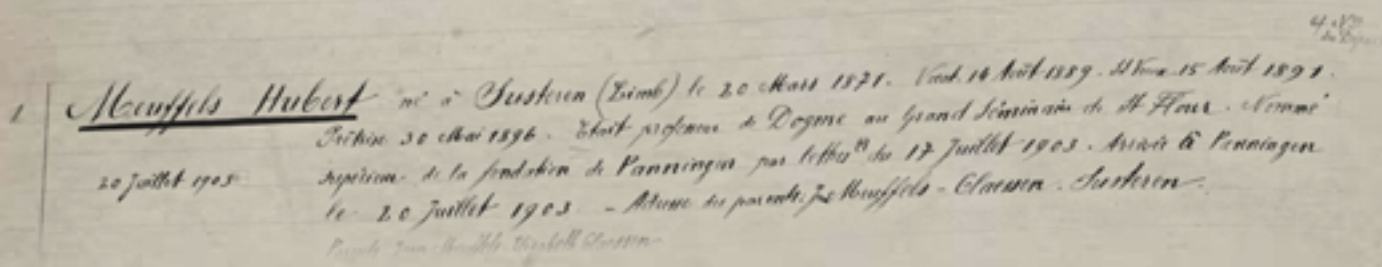 1 Meuffels Hubert né à Susteren (Limb) le 20 Mars 1871. Vint. 14 Août 1889. St Vœux 15 Août 1891.
Prêtrise 30 Mai 1896. Etait professeur de Dogme au Grand Séminaire de St Flour. Nommé
20 Juillet 1903 supérieur de la fondation de Panningen par lettre du 17 Juillet 1903. Arrivée à Panningen
le 20 Juillet 1903. - Adresse des parents: J. Meuffels - Claessen. Susteren.
Parents Jean Meuffels Elisabeth Claessen